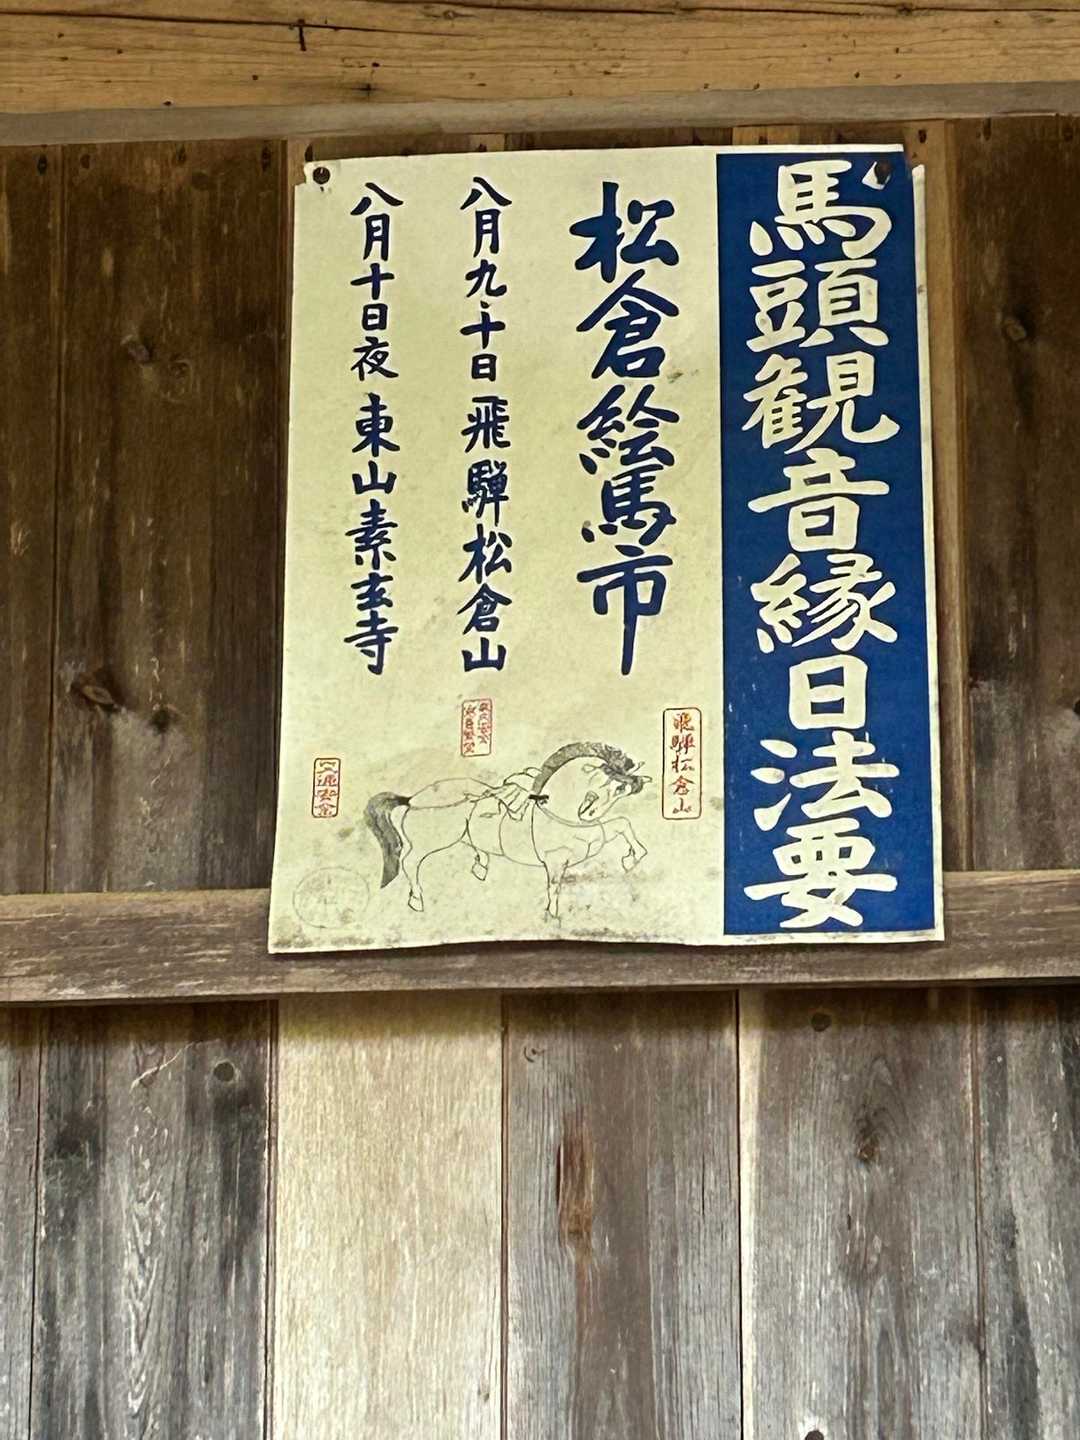 馬頭観音縁日法要
松倉絵馬市
八月九・十日 飛騨松倉山
八月十日夜 東山素玄寺
飛騨松倉山
交通安全